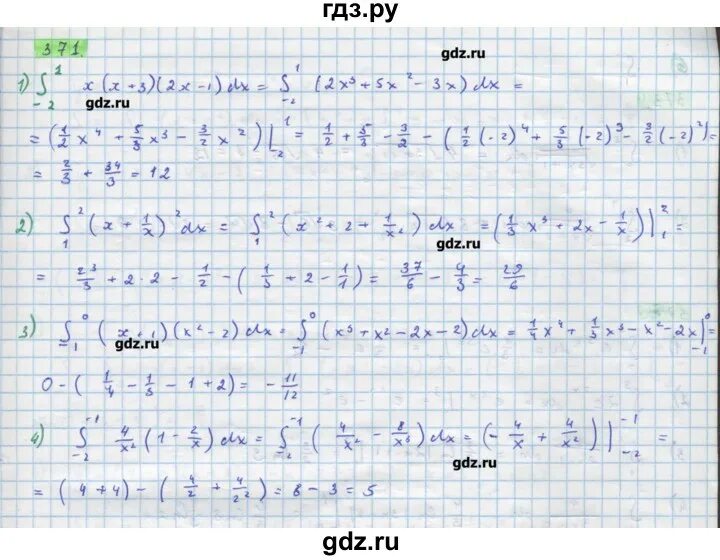 гдз.ру
371.
1) ∫₋₂¹ x(x+3)(2x-1)dx = ∫₋₂¹ (2x³+5x²-3x)dx =
gdz.ru
= (1/2 x⁴ + 5/3 x³ - 3/2 x²)|₋₂¹ = 1/2 + 5/3 - 3/2 - (1/2 (-2)⁴ + 5/3 (-2)³ - 3/2 (-2)²) =
= 2/3 + 34/3 = 12
2) ∫₁² (x + 1/x)² dx = ∫₁² (x² + 2 + 1/x²) dx = (1/3 x³ + 2x - 1/x)|₁² =
gdz.ru
= 2³/3 + 2·2 - 1/2 - (1/3 + 2 - 1/1) = 37/6 - 4/3 = 29/6
3) ∫₋₁⁰ (x+1)(x²-2)dx = ∫₋₁⁰ (x³+x²-2x-2)dx = 1/4 x⁴ + 1/3 x³ - x² - 2x|₋₁⁰ =
gdz.ru
0 - (1/4 - 1/3 - 1 + 2) = - 11/12
4) ∫₋₂⁻¹ 4/x² (1 - 2/x) dx = ∫₋₂⁻¹ (4/x² - 8/x³) dx = (- 4/x + 4/x²)|₋₂⁻¹ =
gdz.ru
= (4+4) - (4/2 + 4/2²) = 8 - 3 = 5
gdz.ru